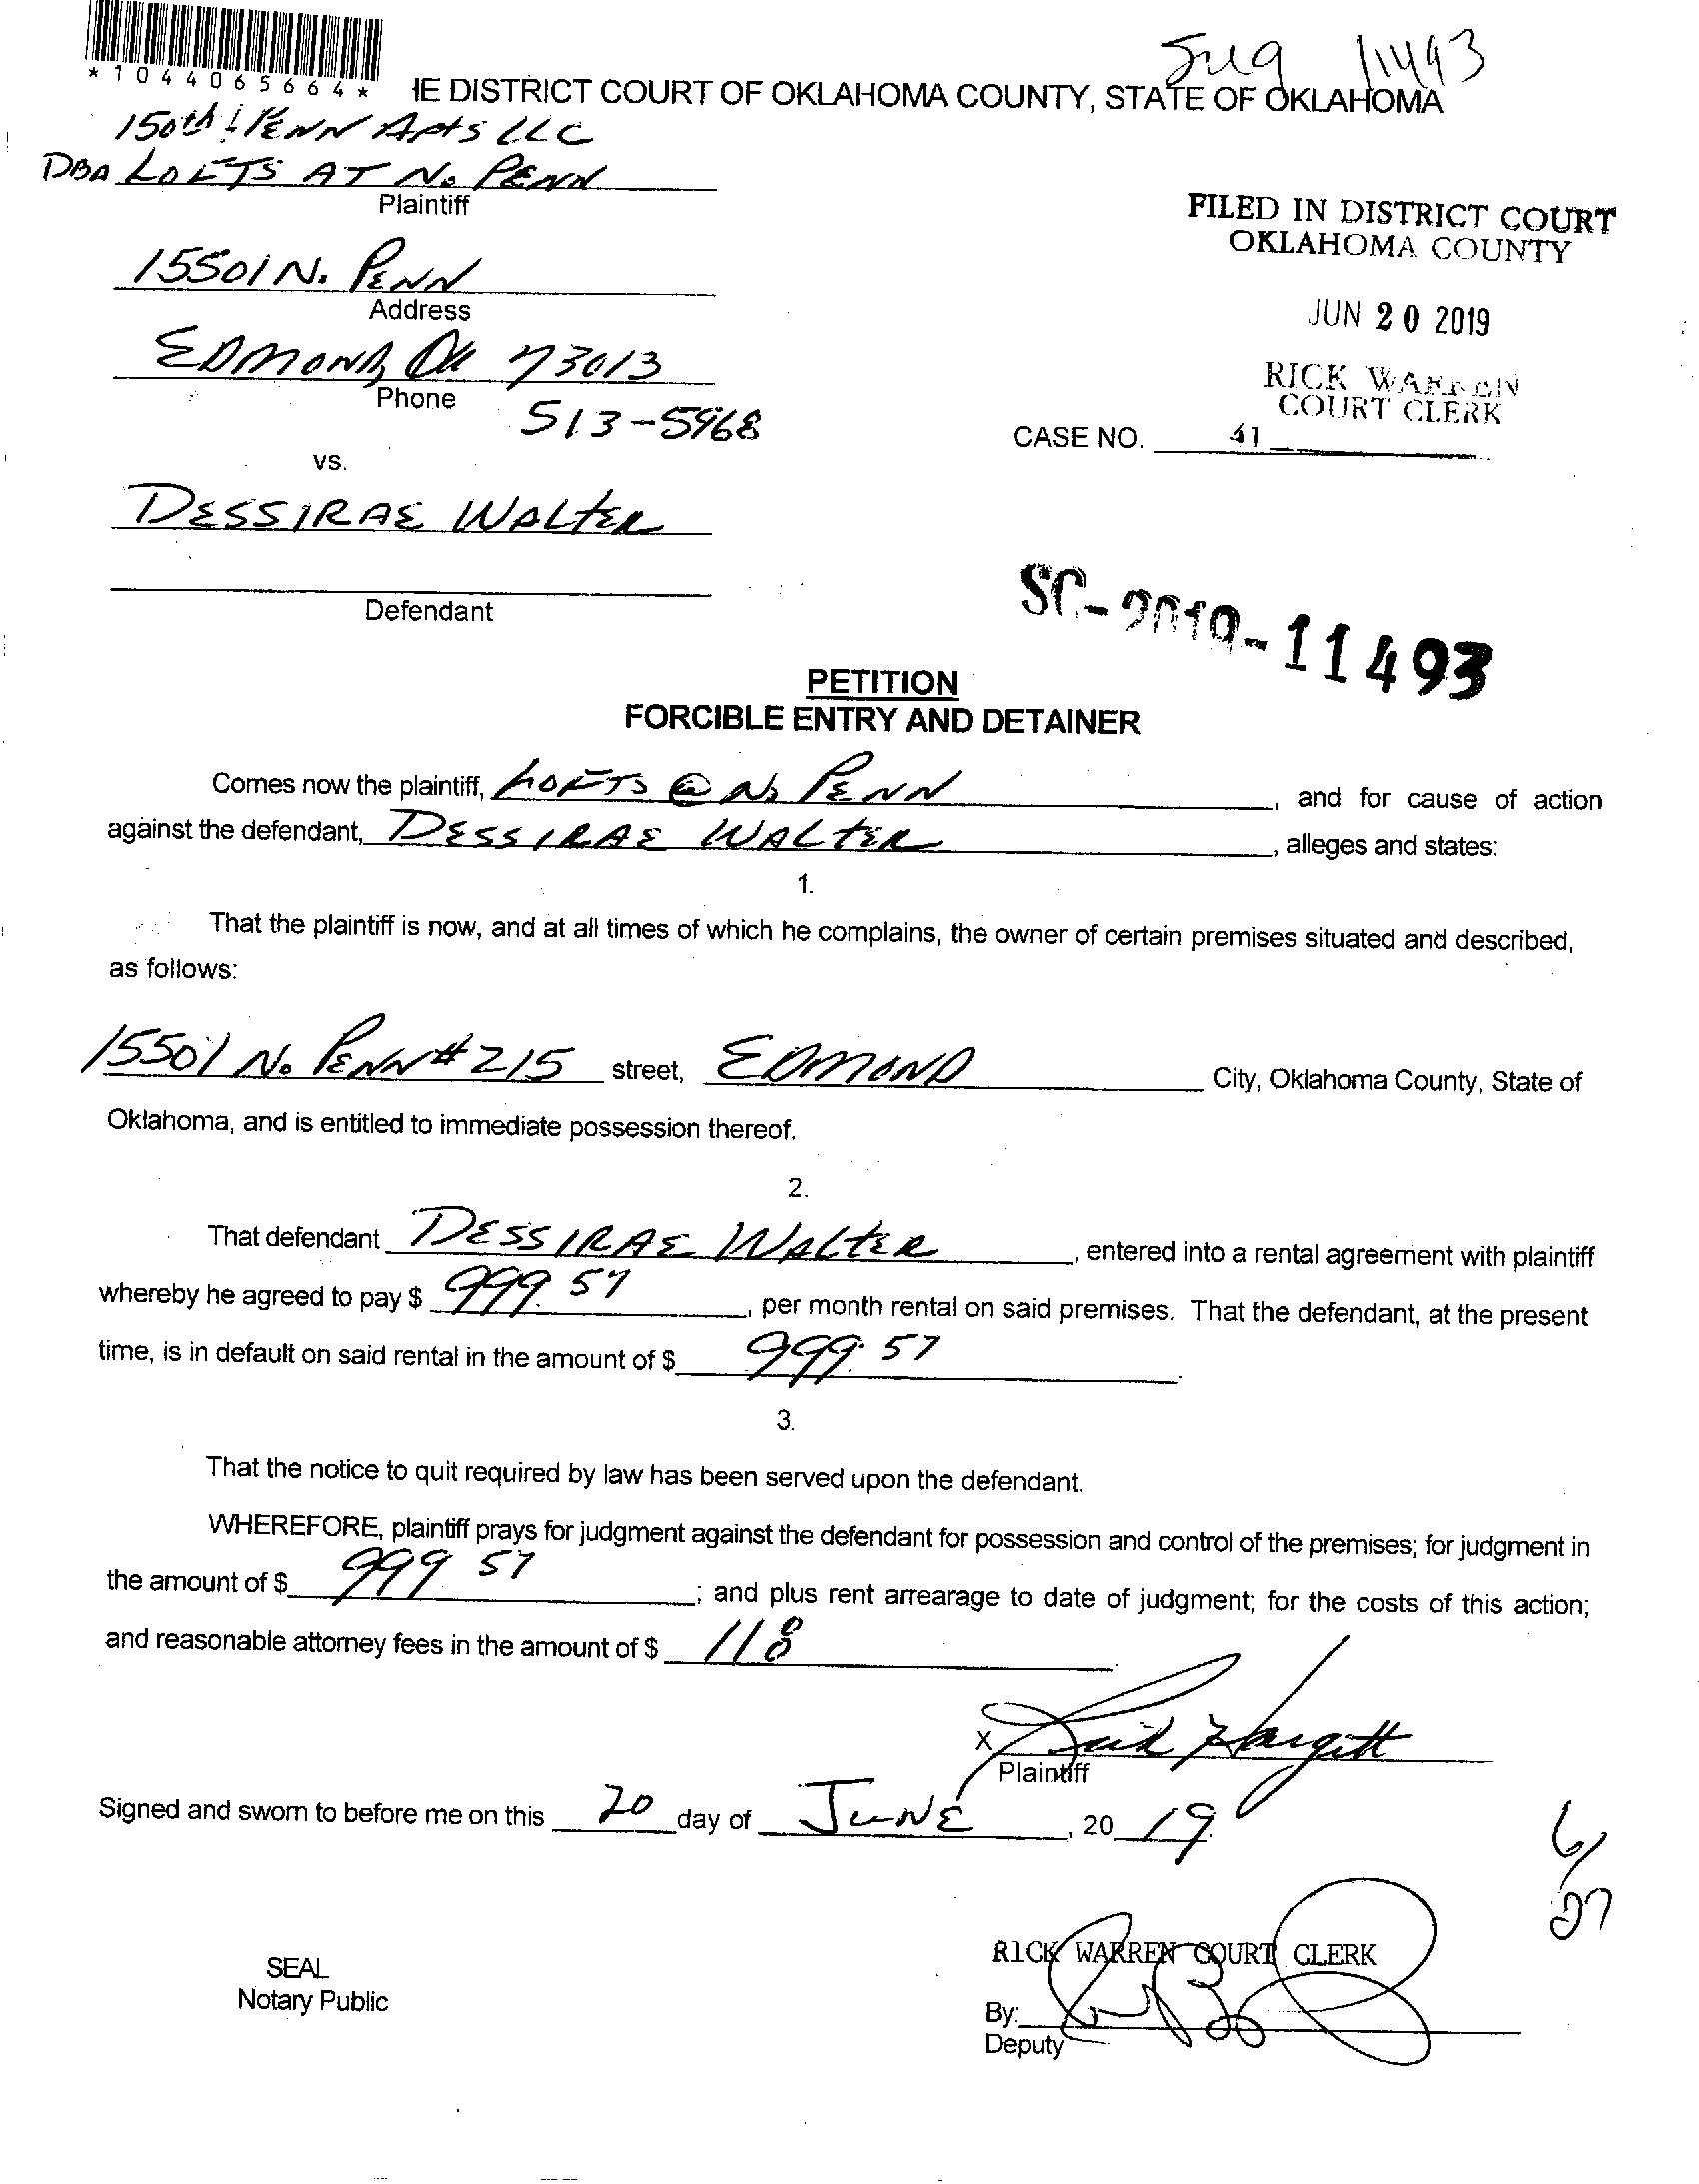 *1044065664*
IE DISTRICT COURT OF OKLAHOMA COUNTY, STATE OF OKLAHOMA
11493
150th & PENN Apts LLC
DBA LOFTS AT No PENN
Plaintiff
FILED IN DISTRICT COURT
OKLAHOMA COUNTY
15501 N. PENN
Address
JUN 20 2019
EDMOND, OK 73013
Phone
513-5968
RICK WARREN
COURT CLERK
CASE NO. 41
vs.
DESSIRAE WALTER
Defendant
SC-2019-11493
PETITION
FORCIBLE ENTRY AND DETAINER
Comes now the plaintiff, LOFTS @ No PENN, and for cause of action
against the defendant, DESSIRAE WALTER, alleges and states:
1.
That the plaintiff is now, and at all times of which he complains, the owner of certain premises situated and described,
as follows:
15501 No PENN #215 street, EDMOND City, Oklahoma County, State of
Oklahoma, and is entitled to immediate possession thereof.
2.
That defendant DESSIRAE WALTER, entered into a rental agreement with plaintiff
whereby he agreed to pay $ 999.57, per month rental on said premises. That the defendant, at the present
time, is in default on said rental in the amount of $ 999.57.
3.
That the notice to quit required by law has been served upon the defendant.
WHEREFORE, plaintiff prays for judgment against the defendant for possession and control of the premises; for judgment in
the amount of $ 999 57; and plus rent arrearage to date of judgment; for the costs of this action;
and reasonable attorney fees in the amount of $ 118.
X Hargett
Plaintiff
Signed and sworn to before me on this 20 day of JUNE, 20 19.
6/27
RICK WARREN COURT CLERK
SEAL
Notary Public
By:
Deputy